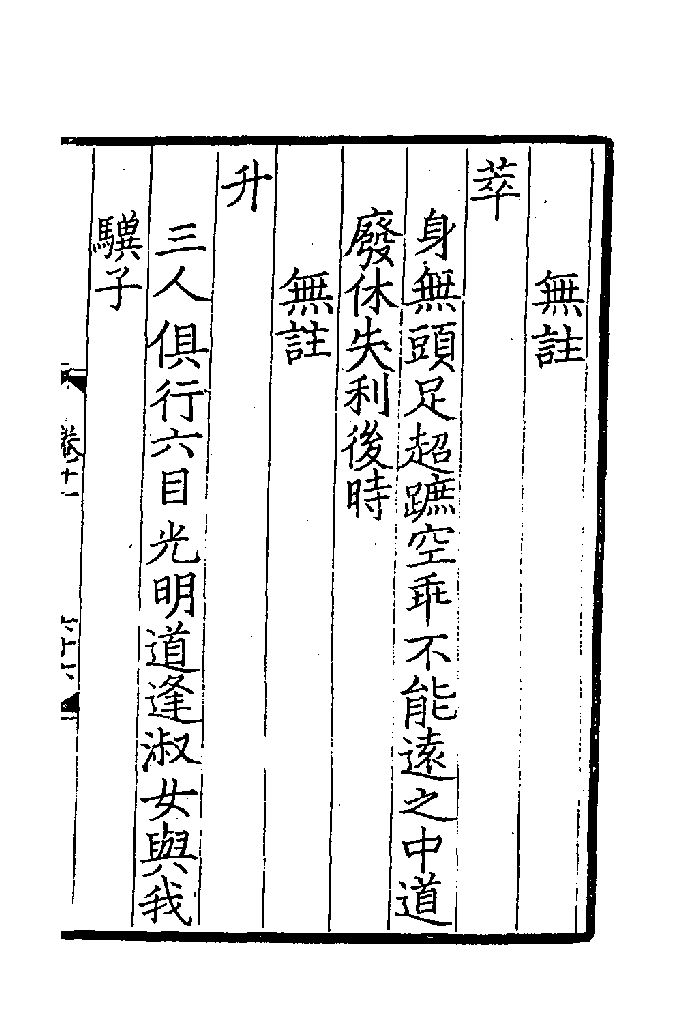 無註
萃
身無頭足超蹠空乖不能遠之中道
廢休失利後時
無註
升
三人俱行六目光明道逢淑女與我
驥子
卷十一